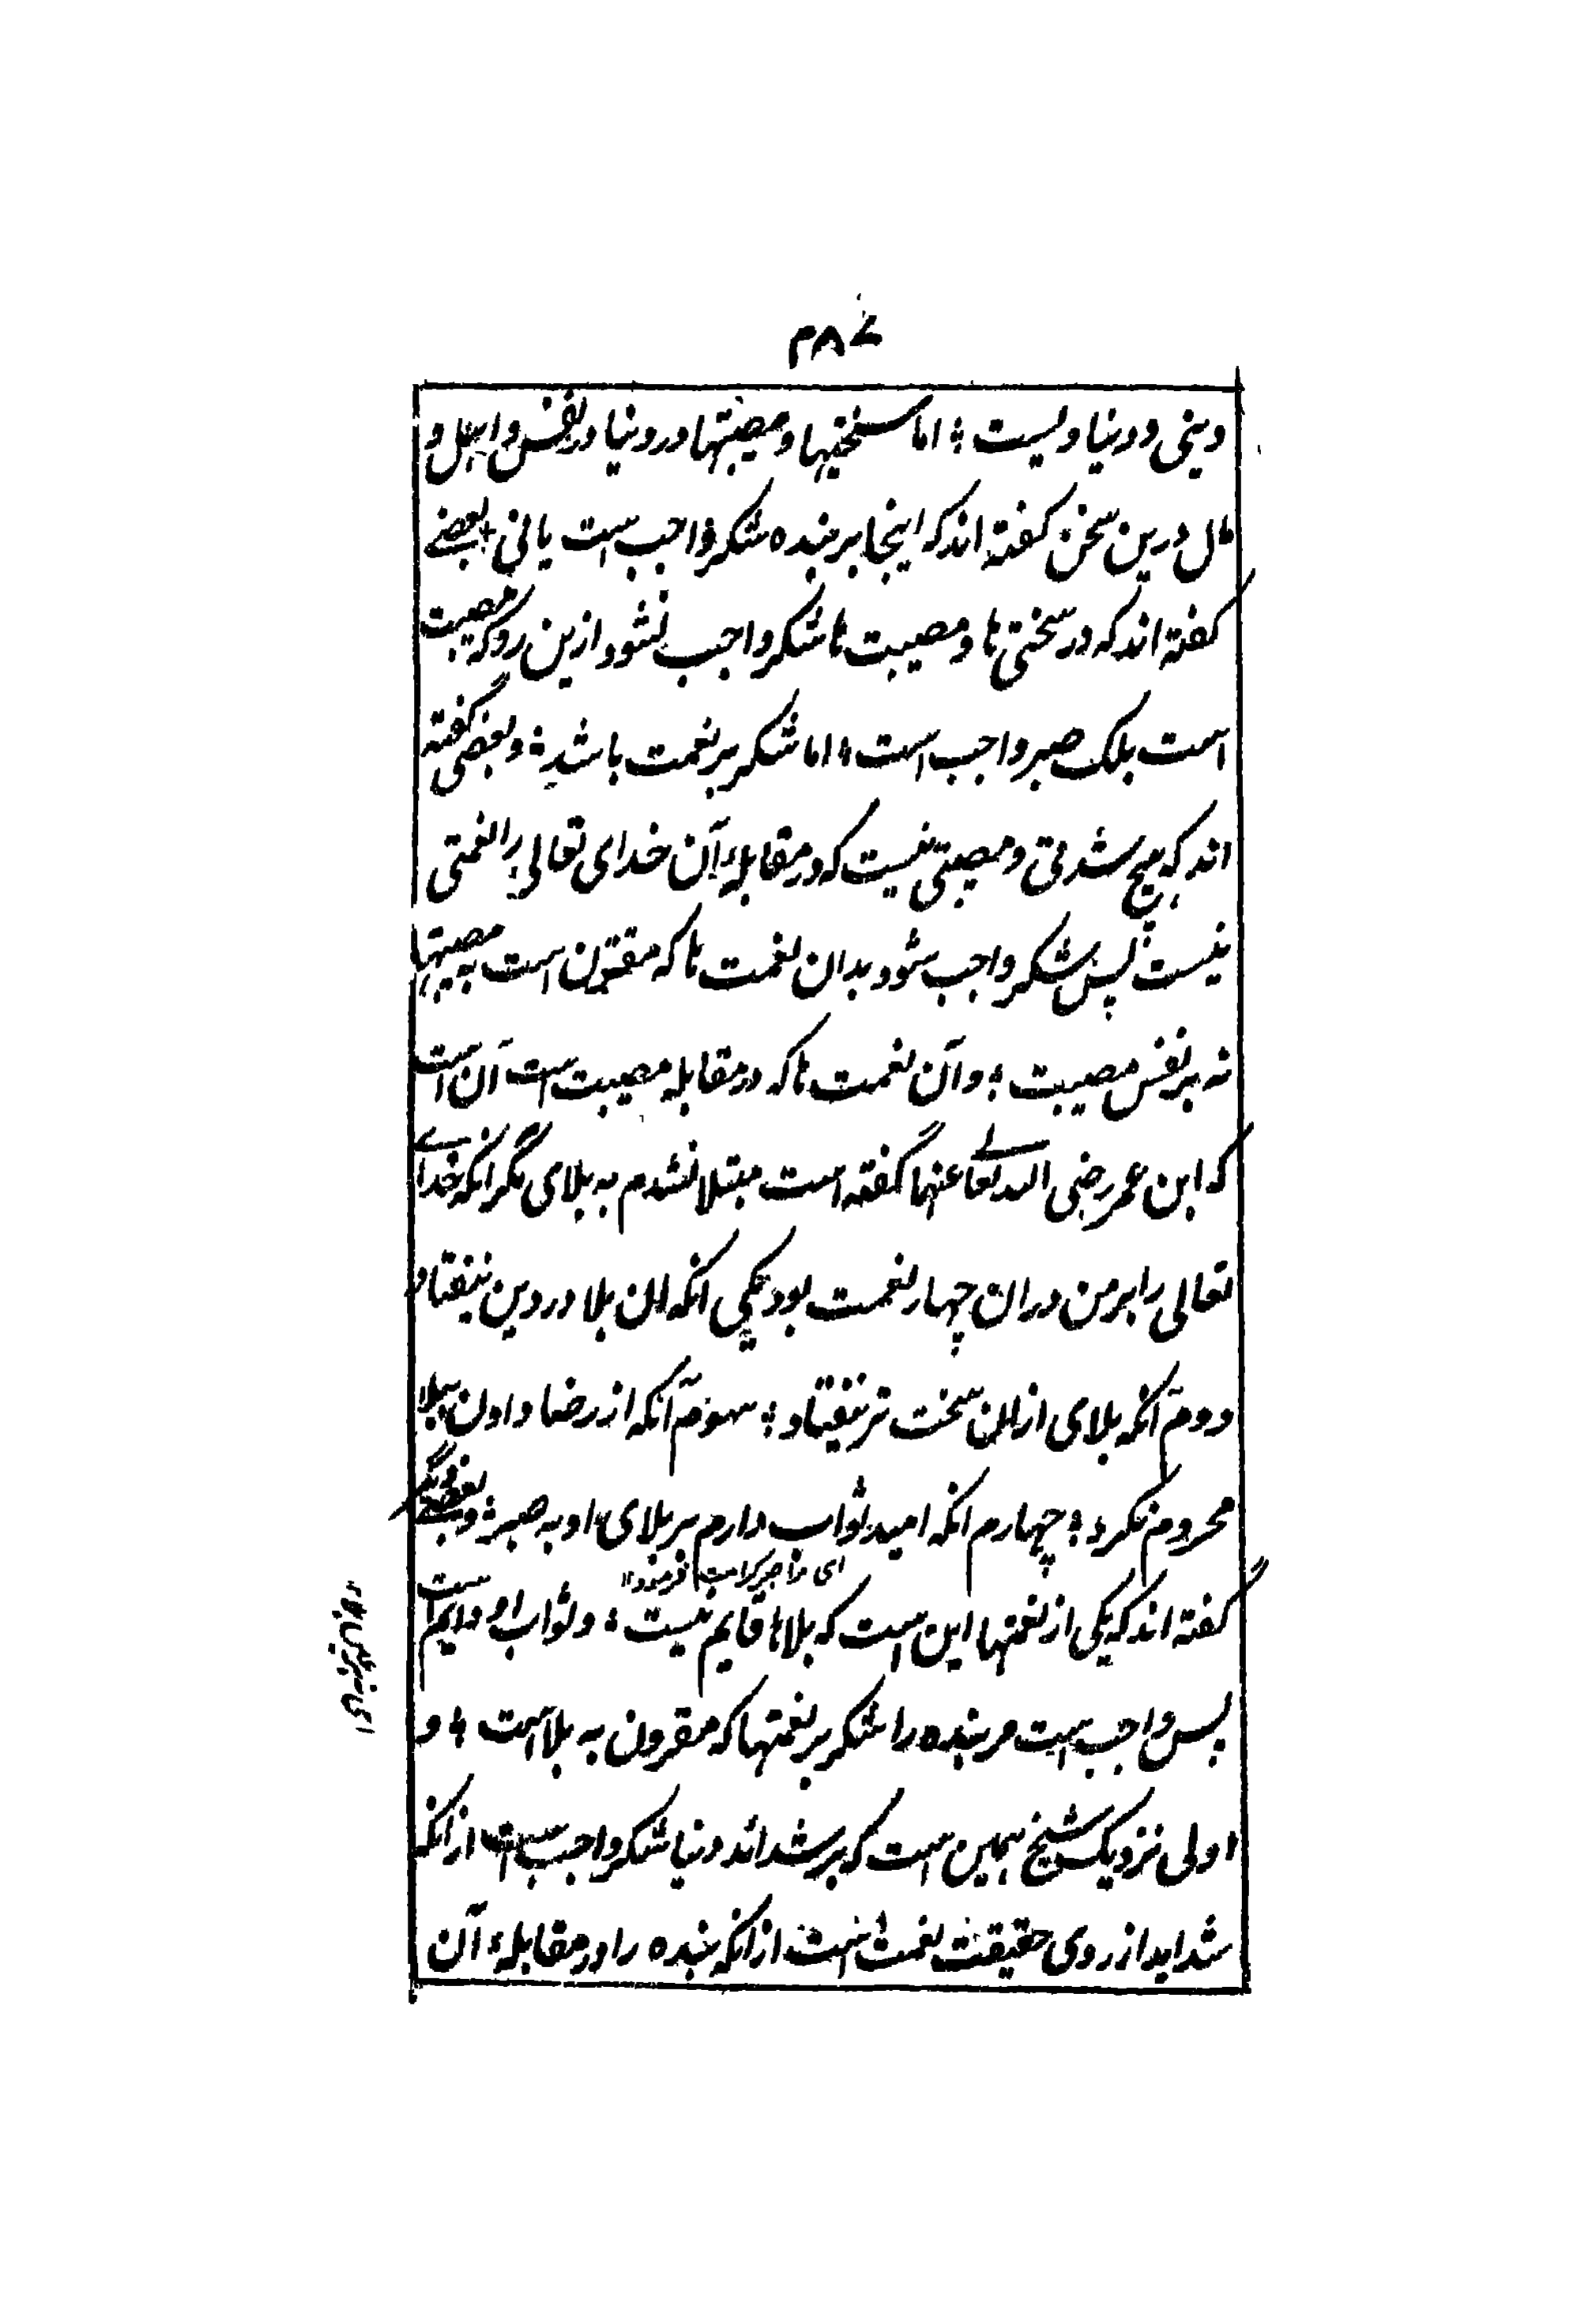 ۳۸۷
دینی و دنیاویست ؛ اما سختیها و مصیبتها در دنیا در نفس و اهل و
مال درین سخن گفته اند که اینجا بر بنده شکر واجب است یا نی ؛ بعضے
گفته اند که در سختی ها و مصیبت ها شکر واجب نشود ازین رو که مصیبت
است بلک صبر واجب است ؛ اما شکر بر نعمت باشد ؛ و بعضی گفته
اند که هیچ شدتی و مصیبتی نیست که در مقابلۀ آن خدای تعالی را نعمتی
نیست پس شکر واجب شود بدان نعمت ها که مقترن است به مصیبتها
نه بر نفس مصیبت ؛ و آن نعمت ها که در مقابله مصیبت است آن است
که ابن عمر رضی الله تعالے عنهما گفته است مبتلا نشدم به بلای مگر انکه خداے
تعالی را بر من دران چهار نعمت بود یکی انکه ان بلا در دین نیفتاد
دوم انکه بلای ازان سخت تر نیفتاد ؛ سوم آنکه از رضا دادن ببلا
محروم نکرد ؛ چهارم انکه امید ثواب دارم بر بلای او به صبر ؛ و بعضے دیگر
گفته اند که یکی از نعمتها این است که بلاها قایم نیست ؛ و ثواب او دایم است
پس واجب است مر بنده را شکر بر نعمتها که مقرون به بلا است ؛ و
اولی نزدیک شیخ همین است که بر شدائد دنیا شکر واجب است ازانکه
شداید از روی حقیقت نعمت است ازانکه بنده را در مقابلۀ آن